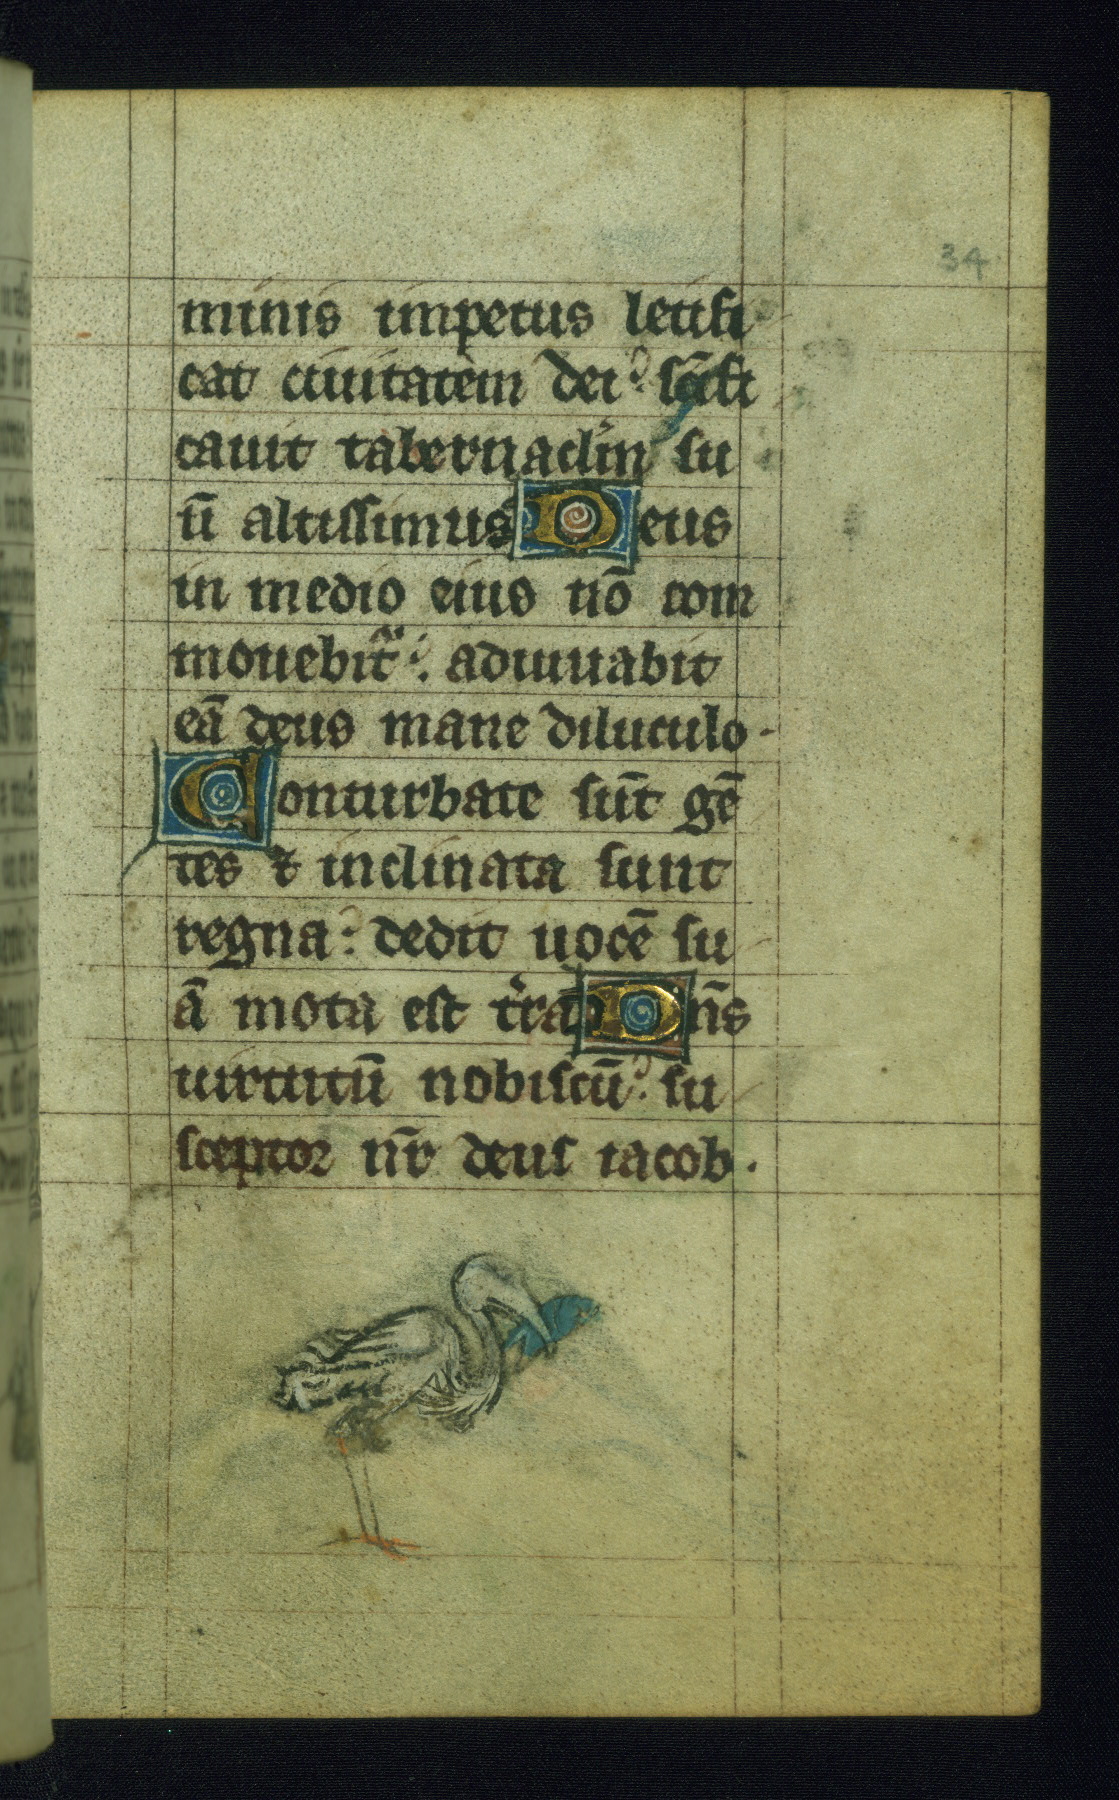 34
minis impetus letifi
cat ciuitatem dei: sc̄ifi
cauit tabernacl'm su
ū altissimus Deus
in medio eius nō com
mouebit᷑: adiuuabit
eā deus mane diluculo.
Conturbate sūt gē
tes ⁊ inclinata sunt
regna: dedit uocē su
ā mota est t'ra Dn̄s
uirtutū nobiscū: su
sceptor nr̄ deus iacob.